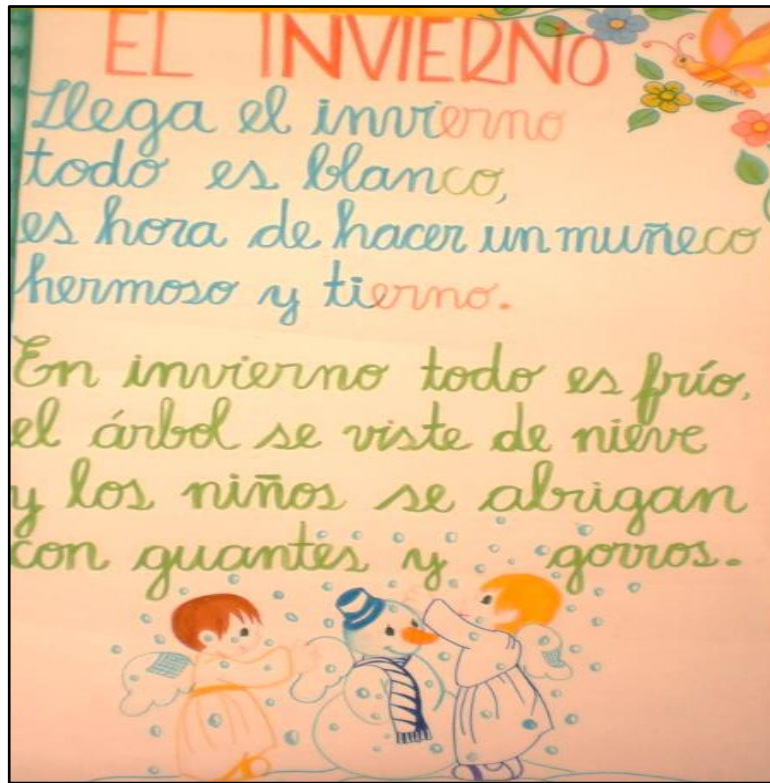 EL INVIERNO
Llega el invierno
todo es blanco,
es hora de hacer un muñeco
hermoso y tierno.
En invierno todo es frío,
el árbol se viste de nieve
y los niños se abrigan
con guantes y gorros.